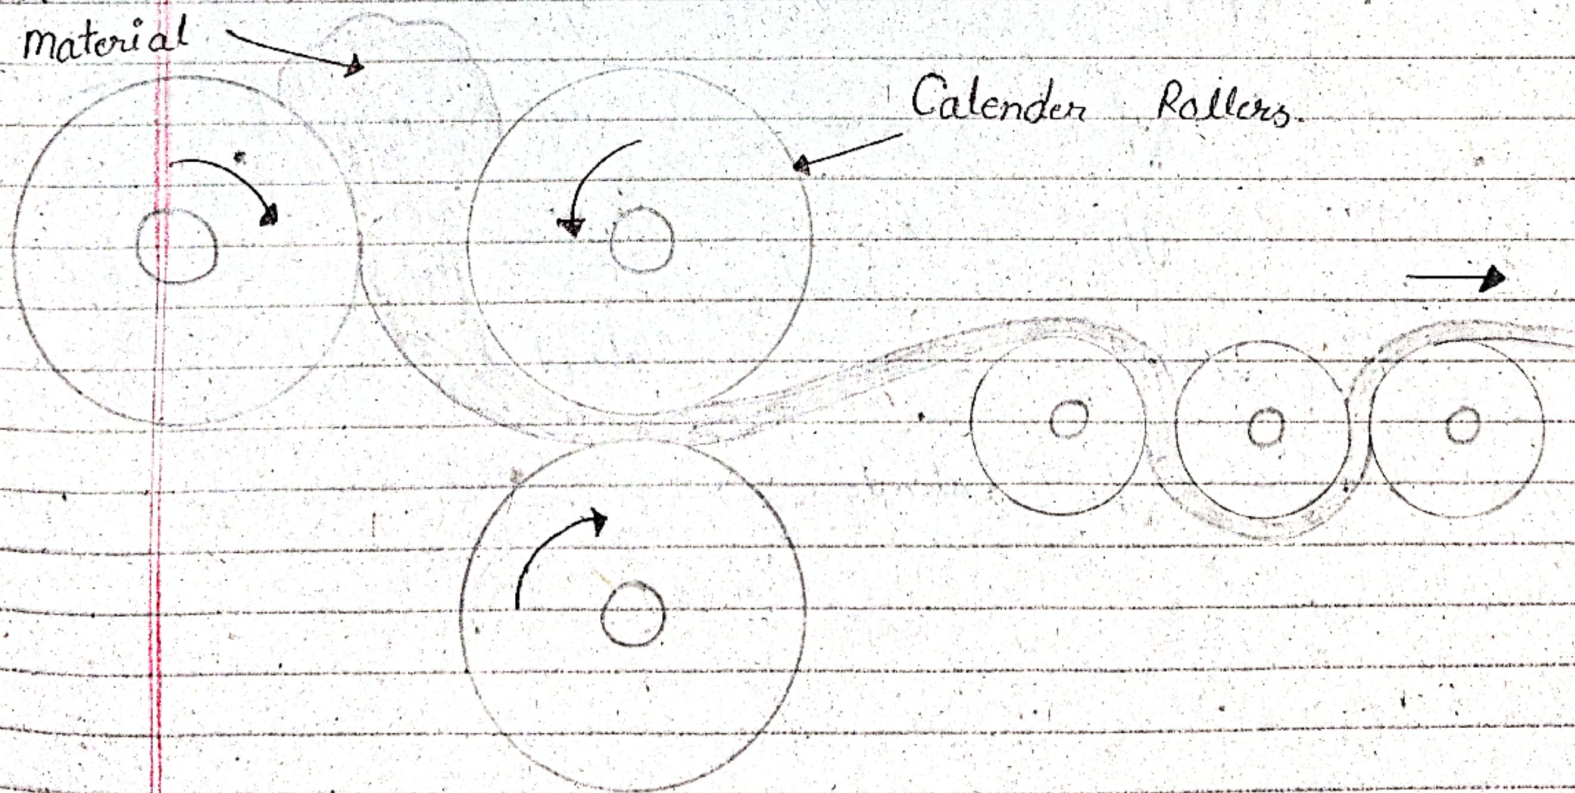 material
Calender Rollers.